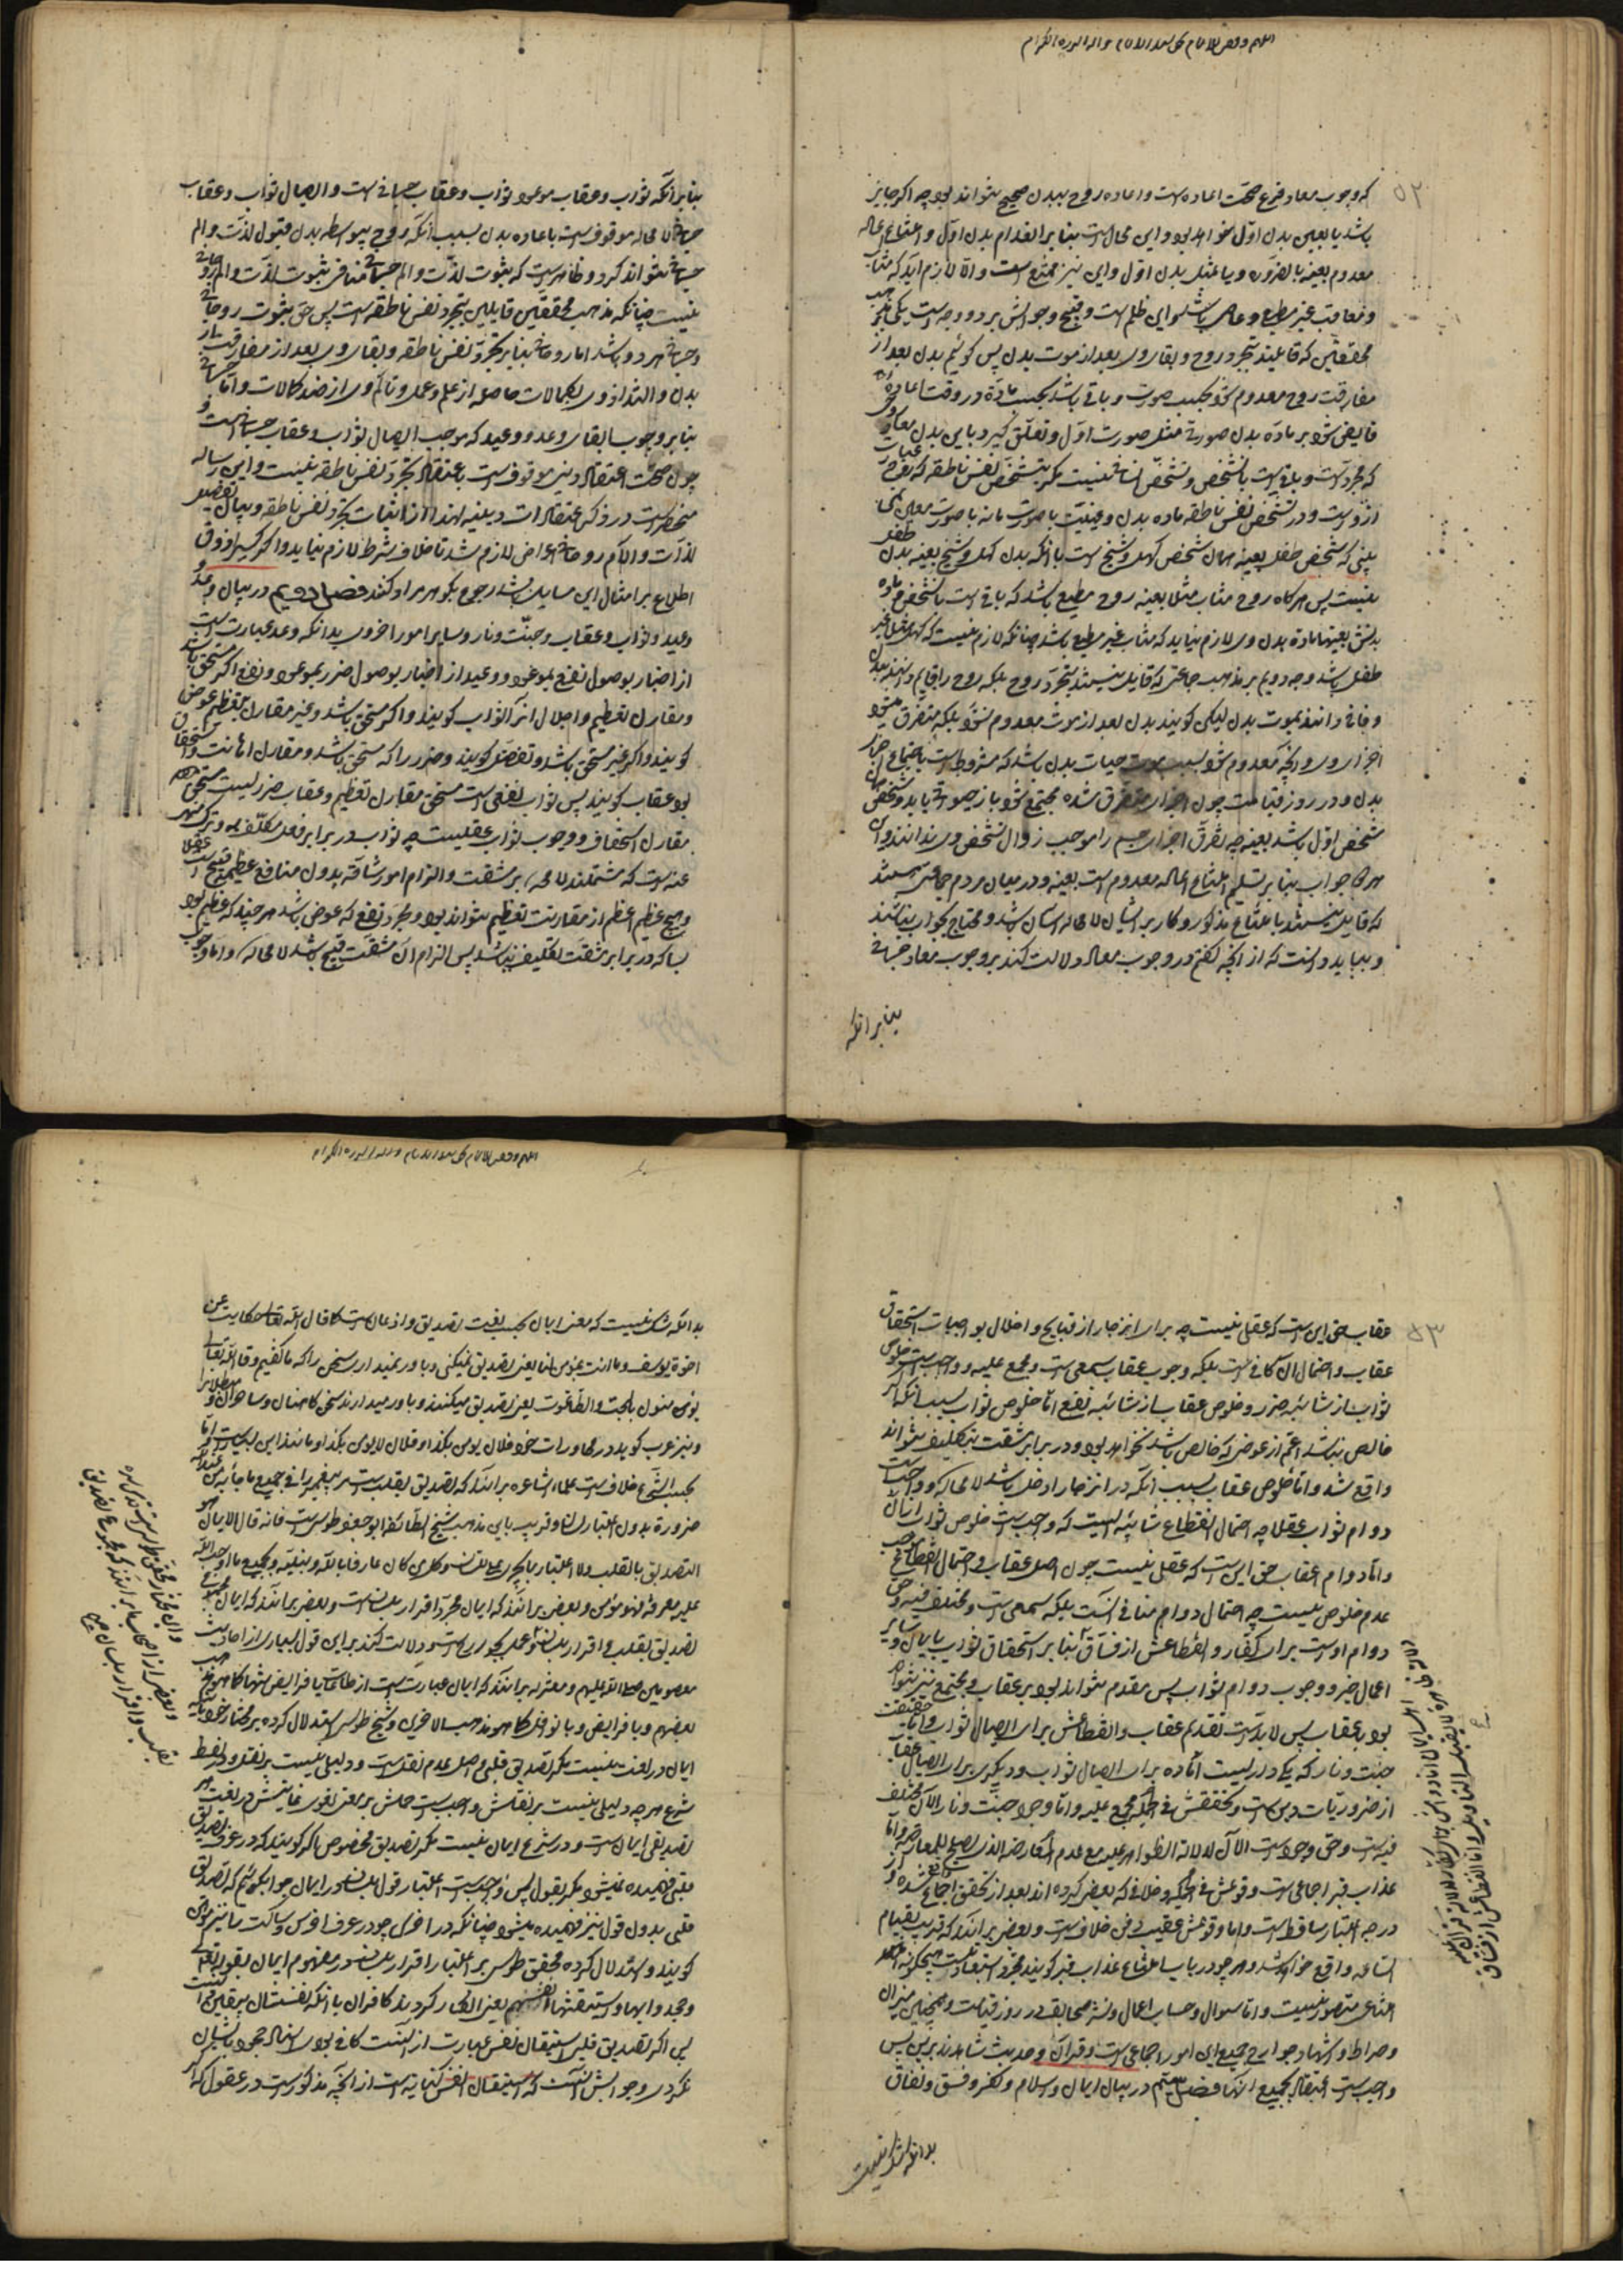 که وجوب معاد فرع صحّت اعاده است و اعاده روح ببدن صحیح نتواند بود چه اگر جایز
باشد یا بعین بدن اوّل خواهد بود و این محال است بنابر انعدام بدن اوّل و امتناع اعاده
معدوم بعینه بالضروره و یا بمثل بدن اوّل و این نیز ممتنع است و الّا لازم آید که مثاب
و معاقب غیر مطیع و عاصی باشد و این ظلم است و قبیح و جوابش بر دو وجه است یکی بر مذهب
محققین که قایلند بتجرد روح و بقاء وی بعد از موت بدن پس گوئیم بدن بعد از
مفارقت روح معدوم شود بحسب صورت و باقی باشد بحسب مادّه و در وقت اعاده
فایض شود بر مادّه بدن صورتی مثل صورت اوّل و تعلّق گیرد باین بدن روحی
که مجرد است و باقی است بالشخص و تشخّص انسانی نیست مگر بتشخّص نفس ناطقه که روح عبارت
از وست و در تشخص نفس ناطقه ماده بدن
بینی که شخص طفل بعینه همان شخص کهل و شیخ است با آنکه بدن کهل و شیخ بعینه بدن طفل
نیست پس هرگاه روح مثاب مثلا بعینه روح مطیع باشد که باقی است بالشخص و ماده
بدنش بعینها مادهٔ بدن وی لازم نیاید که مثاب غیر مطیع باشد چنانکه لازم نیست که کهل مثلا غیر
طفل باشد وجه دویم بر مذهب جماعتی که قایل نیستند بتجرّد روح بلکه روح را قایم دانند ببدن
و فانی دانند بموت بدن لیکن گویند بدن بعد از موت معدوم نشود بلکه متفرّق شود
اجزاء وی و آنچه معدوم شود بسبب موت حیات بدن باشد که مشروط است باجتماع اجزاء
بدن و در روز قیامت چون اجزاء متفرق شده مجتمع شود باز حیوة یابد و شخص همان
شخص اوّل باشد بعینه چه تفرّق اجزاء جسم را موجب زوال تشخص وی ندانند و این
هر دو جواب بنابر تسلیم امتناع اعاده معدوم است بعینه و در میان مردم جماعتی هستند
که قایل نیستند بامتناع مذکور و کار بر ایشان لا محاله آسان باشد و محتاج بجواب نباشند
و بباید دانست که از آنچه گفتیم در وجوب معاد دلالت کند بر وجوب معاد جسمانی
بنابر آنکه
بنابر آنکه ثواب و عقاب موعود ثواب و عقاب جسمانی است و ایصال ثواب و عقاب
جسمانی لا محاله موقوف است باعاده بدن بسبب آنکه روح بیواسطه بدن قبول لذّت و الم
جسمانی نتواند کرد و ظاهر است که ثبوت لذّت و الم جسمانی منافی ثبوت لذّت و الم روحانی
نیست چنانکه مذهب محققین قایلین بتجرد نفس ناطقه است پس حق ثبوت روحانی
و جسمانی هر دو باشد اما روحانی بنابر تجرّد نفس ناطقه و بقاء وی بعد از مفارقت از
بدن و التذاذ وی بکمالات حاصله از علم و عمل و تألّم وی از ضد کمالات و امّا جسمانی
بنابر وجوب ایفاء وعد و وعید که موجب ایصال ثواب و عقاب جسمانی است و
چون صحّت اعتقاد دینی موقوف است باعتقاد تجرّد نفس ناطقه نیست و این رساله
منحصر است در ذکر اعتقادات دینیه لهذا از اثبات تجرّد نفس ناطقه و بیان تفصیل
لذّات و آلام روحانی اعراض لازم شد تا خلاف شرط لازم نیاید و اگر کسی را ذوق
اطلاع بر امثال این مسایل باشد رجوع بگوهر مراد کند فصل دویم در بیان وعد و
وعید و ثواب و عقاب و جنّت و نار و سایر امور اخروی بدانکه وعد عبارت است
از اخبار بوصول نفع بموعود و وعید از اخبار بوصول ضرر بموعود و نفع اگر مستحق باشد
و مقارن تعظیم و اجلال آنرا ثواب گویند و اگر مستحق باشد و غیر مقارن تعظیم عوض
گویند و اگر غیر مستحق باشد تفضّل گویند و ضرر را که مستحق باشد و مقارن اهانت و استخفاف
بود عقاب گویند پس ثواب نفعی است مستحق مقارن تعظیم و عقاب ضرریست مستحق
مقارن استخفاف و وجوب ثواب عقلیست چه ثواب در برابر فعل مکلّف به و ترک منهی
عنه است که مشتملند لا محاله بر مشقت و الزام امور شاقّه بدون منافع عظیم قبیح است عقلا
و هیچ عظیم اعظم از مقارنت تعظیم نتواند بود و مجرّد نفع که عوض باشد هر چند که عظیم بود
بسا که در برابر مشقت تکلیف نباشد پس الزام آن مشقّت قبیح باشد لا محاله و امّا وجوب
عقاب حق این است که عقلی نیست چه برای انزجار از قبایح و اخلال بواجبات استحقاق
عقاب و احتمال آن کافی است بلکه وجوب عقاب سمعی است و مجمع علیه و واجب است خلوص
ثواب از شائبه ضرر و خلوص عقاب از شائبه نفع امّا خلوص ثواب بسبب آنکه اگر
خالص نباشد اعمّ از عوض که خالص باشد نخواهد بود و در برابر مشقّت تکلیف نتواند
واقع شد و امّا خلوص عقاب بسبب آنکه در انزجار ادخل باشد لا محاله و واجب است
دوام ثواب عقلا چه احتمال انقطاع شائبه ایست که واجب است خلوص ثواب از آن
و امّا دوام عقاب حق این است که عقلی نیست چون اصل عقاب و احتمال انقطاع موجب
عدم خلوص نیست چه احتمال دوام منافی آنست بلکه سمعی است و مختلف فیه و حق
دوام اوست برای کفّار و انقطاعش از فسّاق بنابر استحقاق ثواب بایمان و سایر
اعمال خیر و وجوب دوام ثواب پس مقدم نتواند بود بر عقاب و مجتمع نیز نتواند
بود با عقاب پس لا بدّ است تقدیم عقاب و انقطاعش برای ایصال ثواب و امّا حقیقت
جنّت و نار که یکی داریست آماده برای ایصال ثواب و دیگری برای ایصال عقاب
از ضروریّات دین است و تحققش فی الجمله مجمع علیه و امّا وجود جنّت و نار الآن مختلف
فیه است و حق وجود است الآن لدلالة الظواهر علیه مع عدم المعارضه الذی یصلح للمعارضه و امّا
عذاب قبر اجماعی است وقوعش فی الجمله و خلافی که بعضی کرده‌اند بعد از تحقق اجماع واقع شده و از
درجه اعتبار ساقط است و اما وقوعش عقیب دفن خلاف است و بعضی برآنند که قریب بقیام
الساعه واقع خواهد شد
امتناعی متصور نیست و امّا سؤال و حساب اعمال و نشر صحایف در روز قیامت و همچنین میزان
و صراط و اشهاد جوارح جمیع این امور اجماعی است و قرآن و حدیث شاهدند بر این پس
واجب است اعتقاد بجمیع آنها فصل سیّم در بیان ایمان و اسلام و کفر و فسق و نفاق
بدانکه شک نیست
بدانکه شک نیست که معنی ایمان بحسب لغت تصدیق و اذعان است کما قال الله تعالی حکایت عن
اخوة یوسف و ما انت بمؤمن لنا یعنی تصدیق نمیکنی و باور نمیداری سخن را که ما گفتیم و قال الله تعالی
یؤمنون بالجبت و الطاغوت یعنی تصدیق میکنند و باور میدارند سخن کاهنان و ساحران و
و نیز عرب گوید در محاورات خود فلان یؤمن بکذا و فلان لا یؤمن بکذا و مانند این بسیار است و امّا
بحسب الشّرع خلاف است علماء اشاعره برآنند که تصدیق بقلب است پیغمبر را فی جمیع ما جاء به من عند الله
ضرورة بدون اعتبار لسان و قریب باین مذهب شیخ الطائفه ابو جعفر طوسی است فانه قال الایمان هو
التصدیق بالقلب و لا اعتبار بما یجری علی اللسان و کل من کان عارفا بالله و بنبیّه و بجمیع ما اوجب الله
علیه معرفته فهو مؤمن و بعضی برآنند که ایمان مجرّد اقرار بلسان است و بعضی برآنند که ایمان
تصدیق بقلب و اقرار بلسان و عمل بجوارح است و دلالت کند بر این قول بسیاری از احادیث
معصومین صلوات الله علیهم و معتزله برآنند که ایمان عبارت است از طاعات یا فرایض تنها کما هو مذهب
بعضهم و یا فرایض و یا نوافل کما هو مذهب الآخرین و شیخ طوسی استدلال کرده بر مختار خود که
ایمان در لغت نیست مگر تصدیق قلبی و اصل عدم نقل است و دلیلی نیست بر نقل و در لفظ
شرع هر چه دلیلی نیست بر نقلش واجب است حملش بر معنی لغوی
تصدیقی ایمان است و در شرع ایمان نیست مگر تصدیق مخصوص
قلبی فهمیده نمیشود مگر بقول پس واجب است اعتبار قول بلسان در ایمان جواب گوئیم که تصدیق
قلبی بدون قول نیز فهمیده میشود چنانکه در اخرس چه در عرف اخرس و ساکت را نیز مؤمن
گویند و استدلال کرده محقق طوسی بر اعتبار اقرار بلسان در مفهوم ایمان بقوله تعالی
و جحدوا بها و استیقنتها انفسهم یعنی انکار کردند کافران با آنکه نفسشان بیقین دانست
پس اگر تصدیق قلبی استیقان نفس عبارت از آنست کافی بودی
نکردی و جوابش آنست که استیقان انفس کنایه است از آنچه مذکور است در عقول که